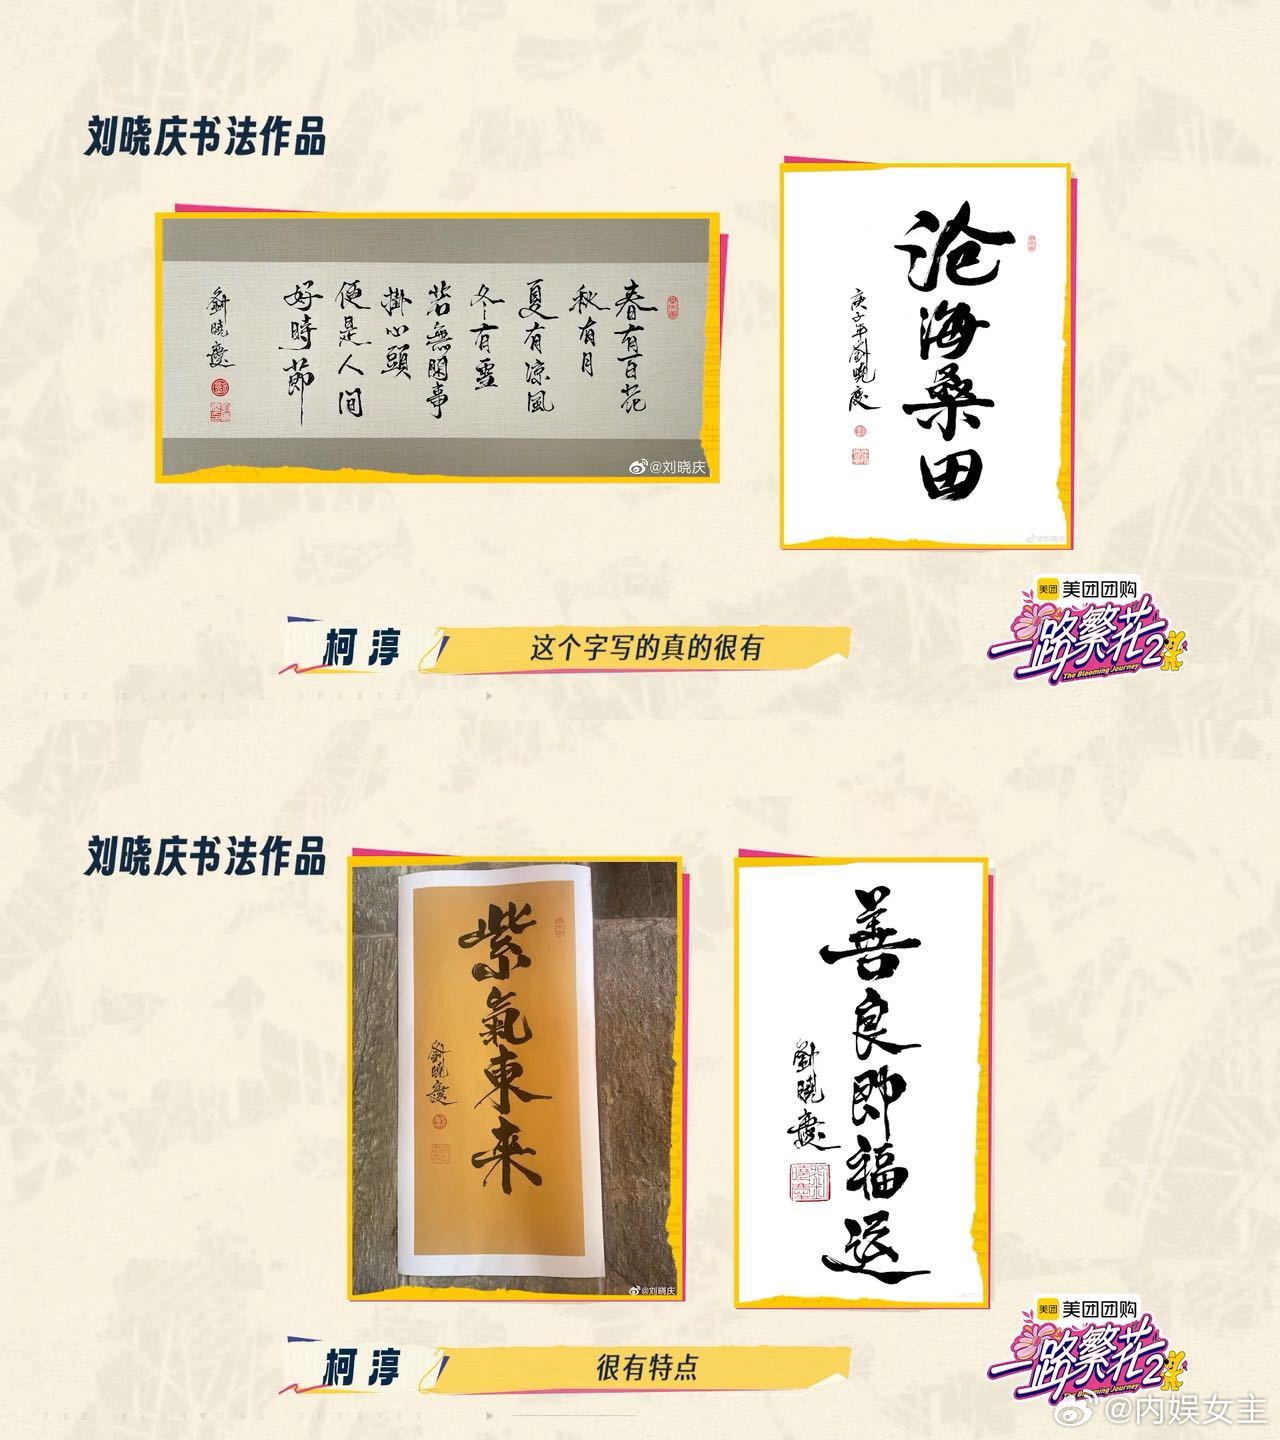 刘晓庆书法作品
春有百花
秋有月
夏有凉風
冬有雪
若無閑事
掛心頭
便是人间
好時節
劉曉慶
@刘晓庆
沧海桑田
庚子年劉曉慶
@刘晓庆
美团 美团团购
一路繁花2
The Blooming Journey
柯淳
这个字写的真的很有
THE BLOOMING JOURNEY
刘晓庆书法作品
紫氣東来
劉曉慶
@刘晓庆
善良即福运
劉曉慶
美团 美团团购
一路繁花2
The Blooming Journey
柯淳
很有特点
THE BLOOMING JOURNEY
@内娱女主